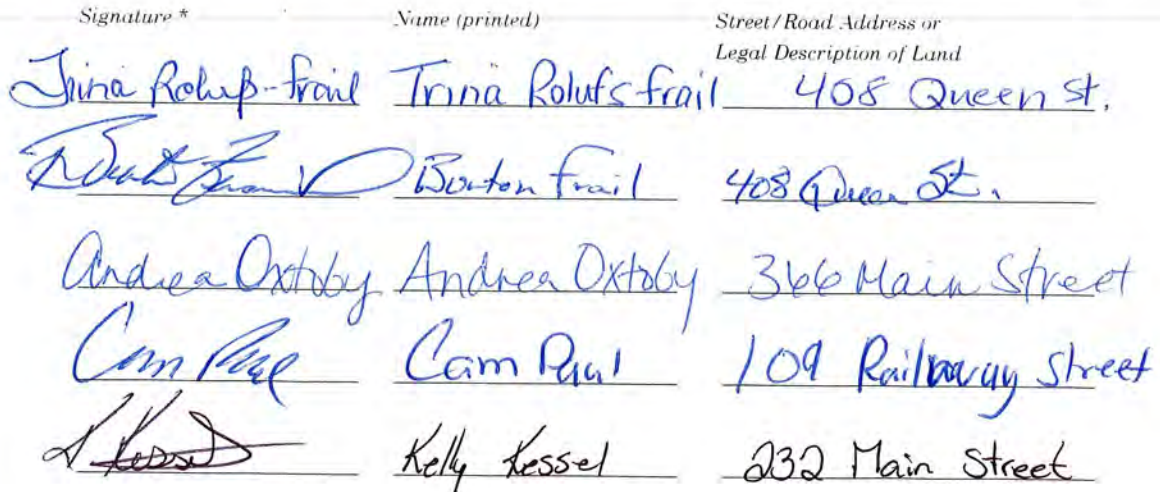 Signature * Name (printed) Street/Road Address or
Legal Description of Land
Trina Rolufs-frail Trina Rolufs frail 408 Queen st.
Burton frail 408 Queen St.
Andrea Oxtoby Andrea Oxtoby 366 Main Street
Cam Paul Cam Paul 109 Railway Street
Kessel Kelly Kessel 232 Main Street